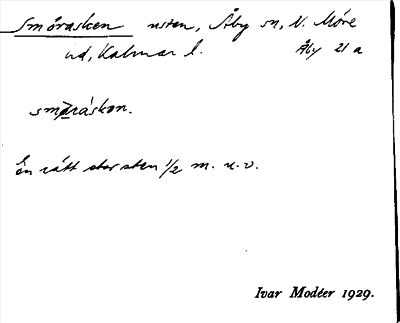 Smörasken sten, Åby sn, N. Möre
hd, Kalmar l. Åby 21 a
smöråskən.
En rätt stor sten 1/2 m. u. v.
Ivar Modéer 1929.